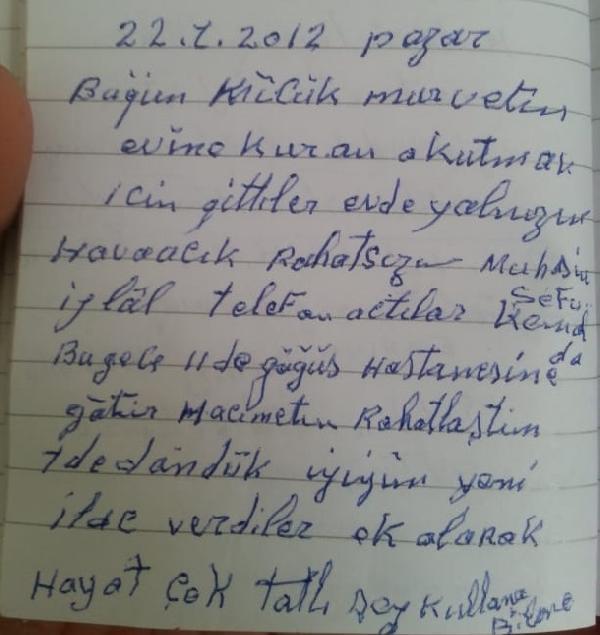 22.1.2012 pazar
Bugün Küçük murvetin
evine kuran okutmak
için gittiler evde yalnızım
Hava açık Rahatsızım Muhsin
iglâl telefon actılar Kemal
Sefa da
Bugece 11 de göğüs Hastanesine
götür Macimetin Rahatlaştım
1 de döndük iyiyim yeni
ilac verdiler ek olarak
Hayat çok tatlı şey kullana
Bilene